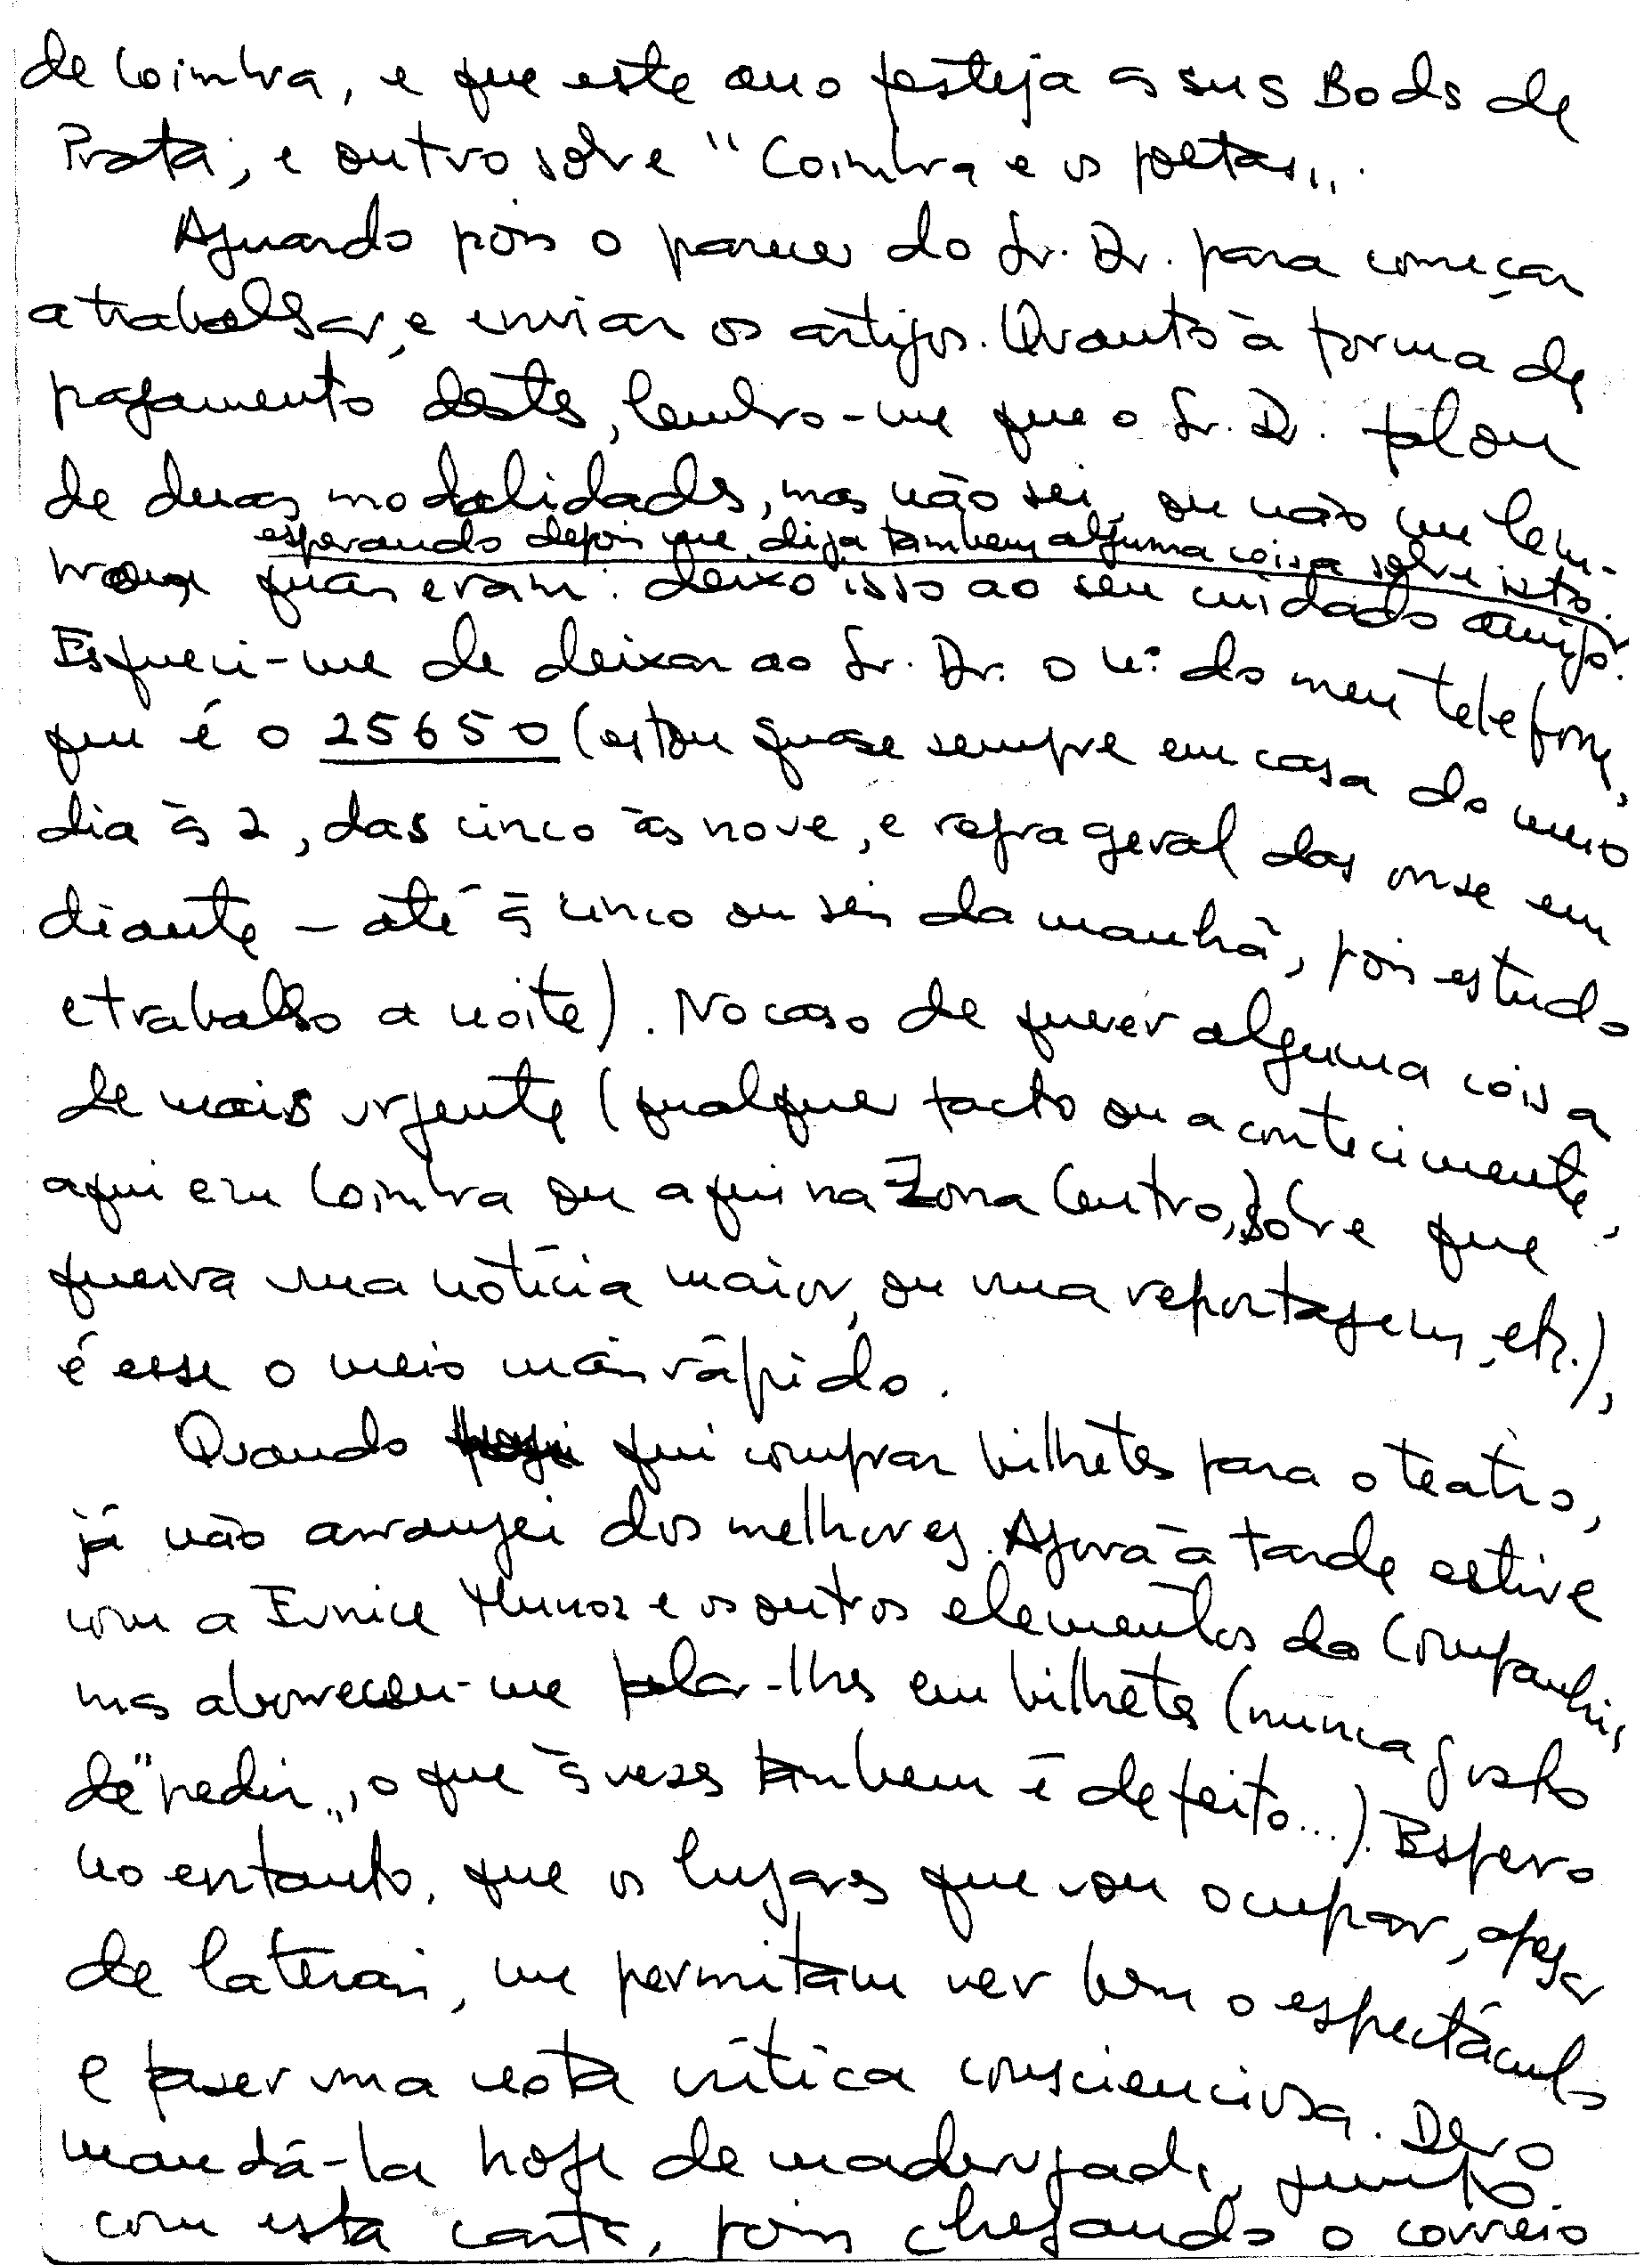 de Coimbra, e que este ano festeja as suas Bodas de
Prata, e outro sobre "Coimbra e os poetas".
Aguardo pois o parecer do Sr. Dr. para começar
a trabalhar, e enviar os artigos. Quanto à forma de
pagamento destes, lembro-me que o Sr. Dr. falou
de duas modalidades, mas não sei, ou não me lem-
esperando depois que diga também alguma coisa sobre isto.
quais eram: deixo isso ao seu cuidado amigo.
Esqueci-me de deixar ao Sr. Dr. o nº do meu telefone,
que é o 25650 (estou quase sempre em casa do meio
dia às 2, das cinco às nove, e regra geral das onze em
diante - até às cinco ou seis da manhã, pois estudo
e trabalho a noite). No caso de querer alguma coisa
de mais urgente (qualquer facto ou acontecimento,
aqui em Coimbra ou aqui na Zona Centro, sobre que
queira uma notícia maior, ou uma reportagem, etc.),
é esse o meio mais rápido.
Quando fui comprar bilhetes para o teatro,
já não arranjei dos melhores. Agora à tarde estive
com a Eunice Munoz e os outros elementos da Companhia,
mas aborreceu-me falar-lhes em bilhetes (nunca gosto
de "pedir", o que às vezes também é defeito...). Espero
no entanto, que os lugares que vou ocupar, apesar
de laterais, me permitam ver bem o espectáculo
e fazer uma nota crítica conscienciosa. Devo
mandá-la hoje de madrugada, junto
com esta carta, pois chegando o correio